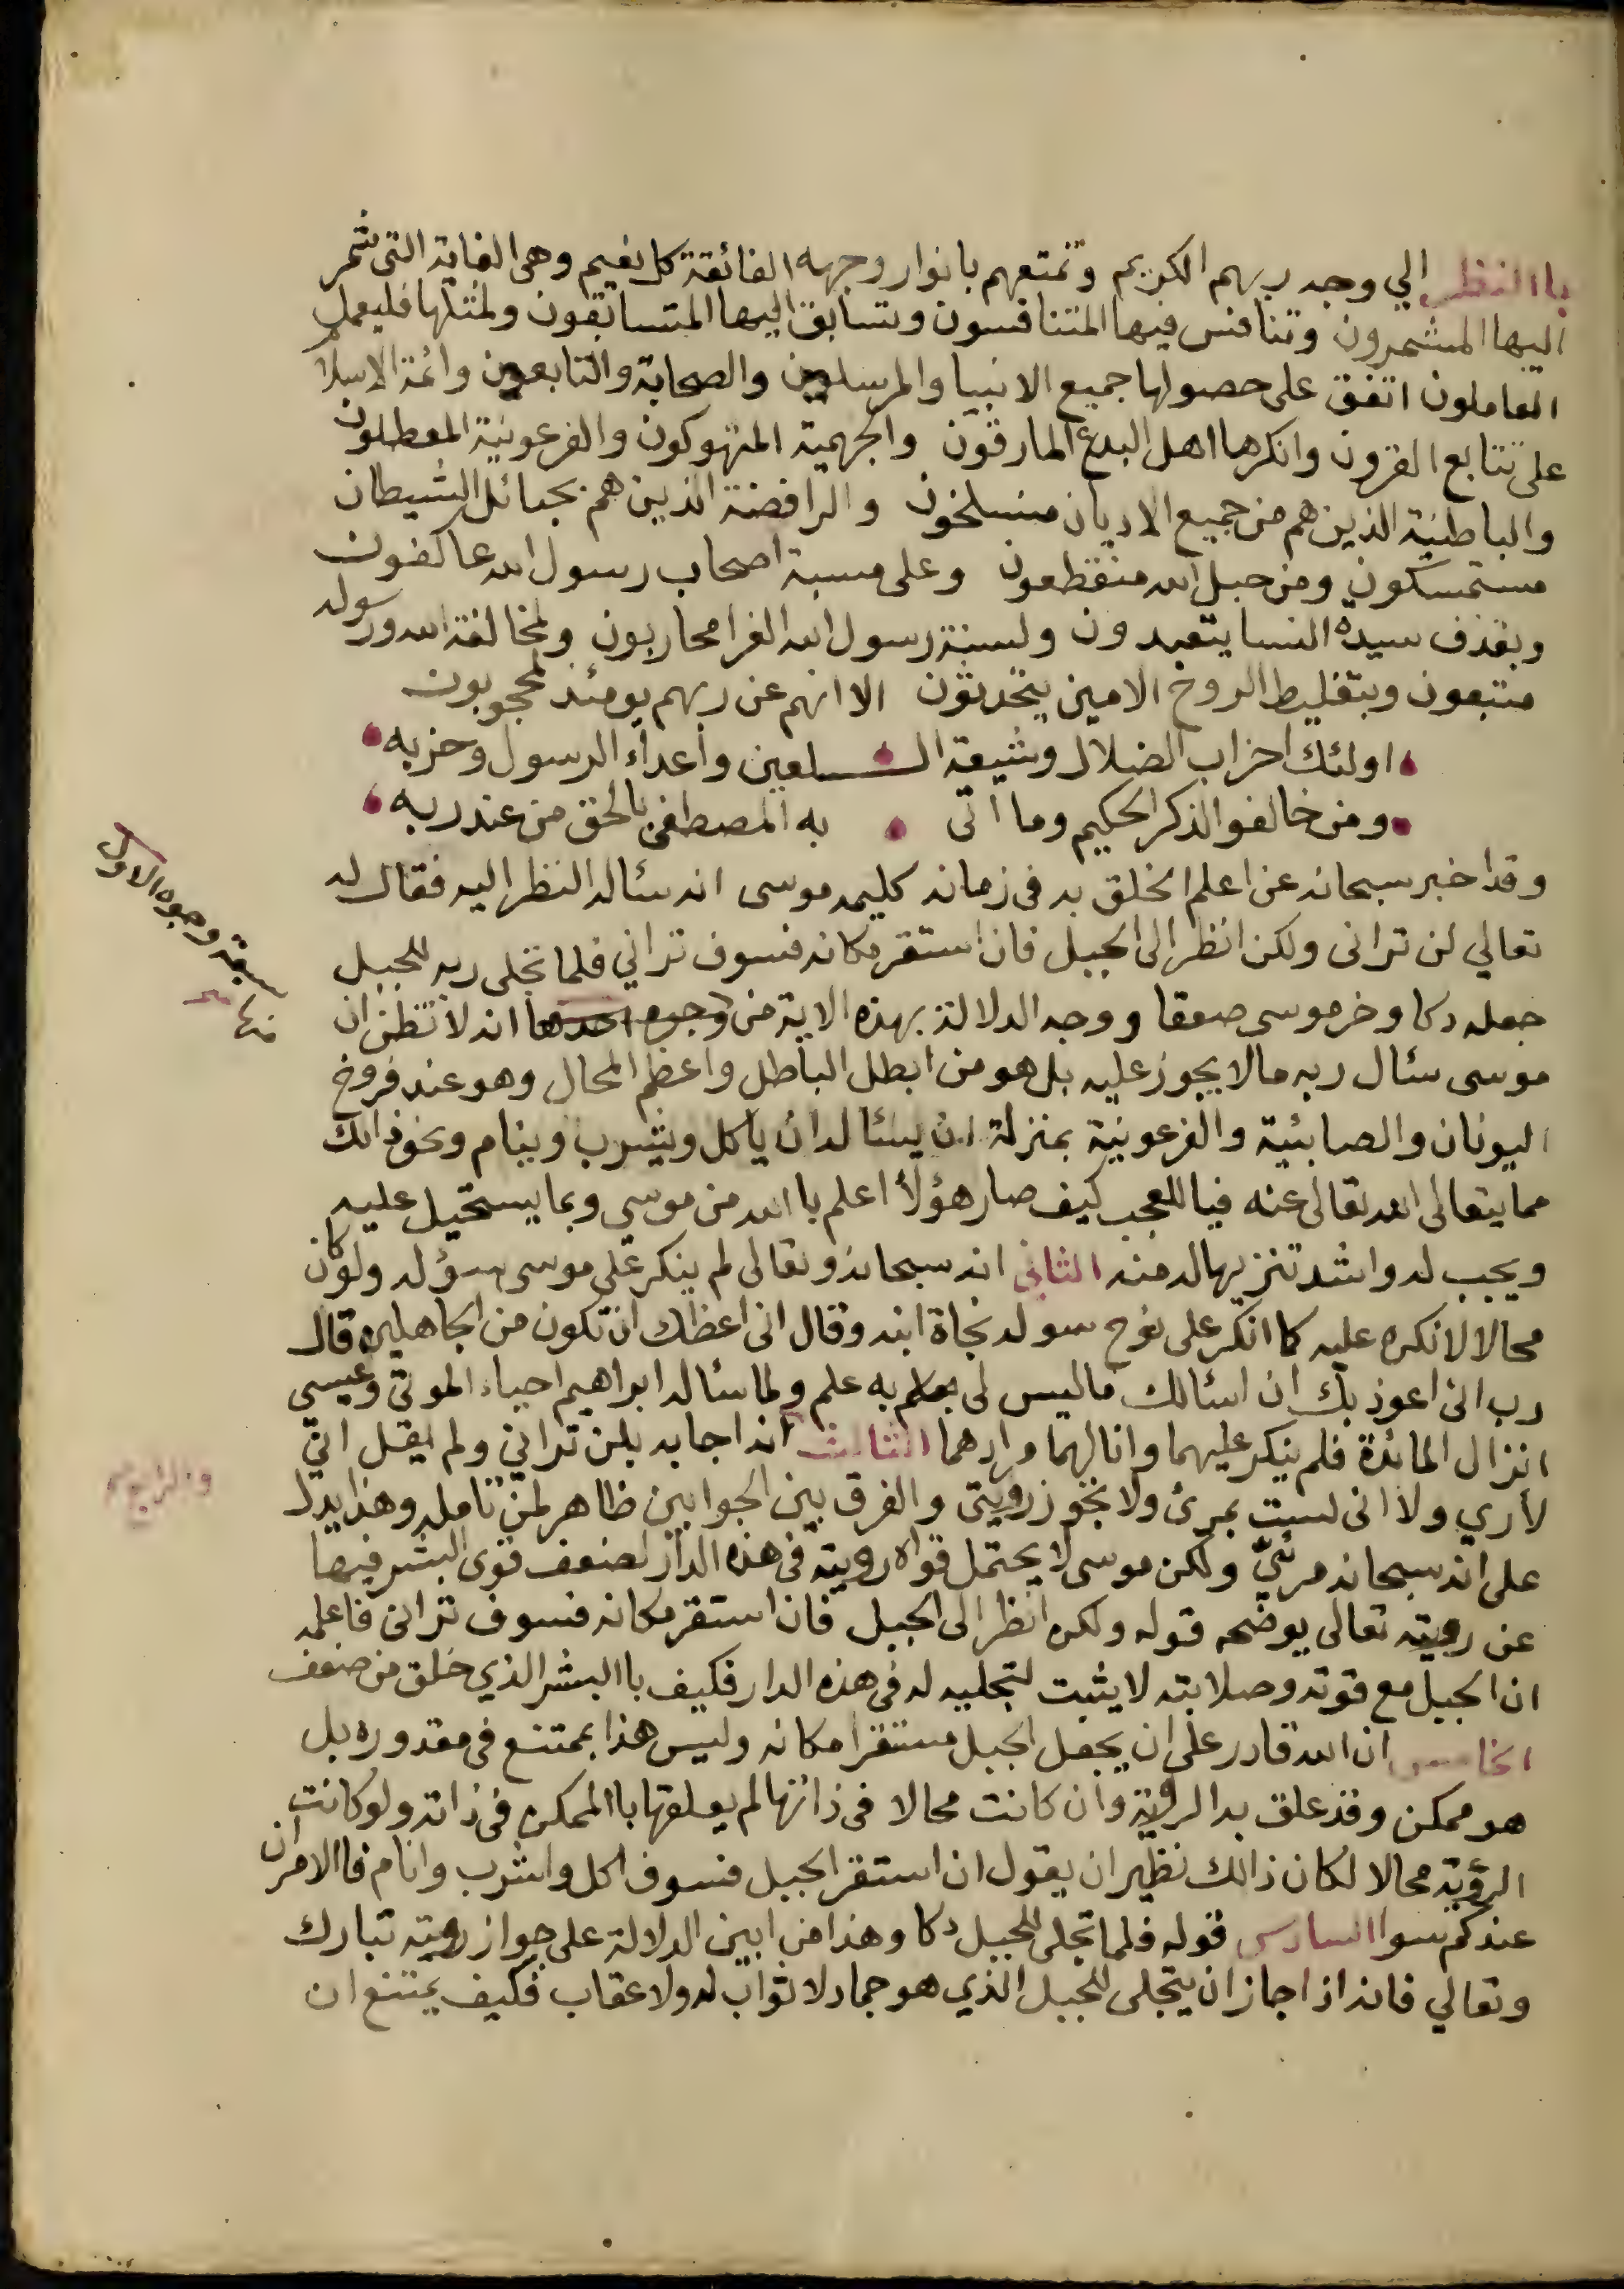 باالنظر الي وجه ربهم الكريم وتمتعهم بانوار وجهه الفائقة كل نعيم وهى الغاية التى شمر
اليها المشمرون وتنافس فيها المتنافسون وتسابق اليها المتسابقون ولمثلها فليعمل
العاملون اتفق على حصولها جميع الانبيا والمرسلين والصحابة والتابعون وائمة الاسلا
على تتابع القرون وانكرها اهل البدع المارقون والجهمية المتهوكون والفرعونية المعطلون
والباطنية الذين هم من جميع الاديان منسلخون والرافضة الذين هم بحبائل الشيطان
مستمسكون ومن حبل الله منقطعون وعلى مسبة اصحاب رسول الله عاكفون
وبقذف سيدة النسا يتعبدون ولسنة رسول الله الغرا محاربون ولمخالفة الله ورسوله
متبعون وبتغليط الروح الامين يتحدثون الا انهم عن ربهم يومئذ لمحجوبون
اولئك احزاب الضلال وشيعة الـلعين واعداء الرسول وحزبه
ومن خالفو الذكر الحكيم وما اتى به المصطفى بالحق من عند ربه
وقد اخبر سبحانه عن اعلم الخلق به فى زمانه كليمه موسى انه سئاله النظر اليه فقال له
تعالي لن ترانى ولكن انظر الى الجبل فان استقر مكانه فسوف تراني فلما تجلى ربه للجبل
جعله دكا وخر موسى صعقا ووجه الدلالة بهذه الاية من وجوه احدها انه لا تظن ان
سبعة وجوه الاول
منها
موسى سئال ربه مالا يجوز عليه بل هو من ابطل الباطل واعظم المحال وهو عند فروخ
اليونان والصابئية والفرعونية بمنزلة ان يسئاله ان ياكل ويشرب وينام ونحو ذالك
مما يتعالى الله تعالى عنه فيا للعجب كيف صار هؤلاء اعلم باالله من موسي وبما يستحيل عليه
ويجب له واشد تنزيها له منه الثاني انه سبحانه وتعالى لم ينكر على موسى سؤله ولو كان
محالا لانكره عليه كما انكر على نوح سوله نجاة ابنه وقال انى اعظك ان تكون من الجاهلين قال
رب انى اعوذ بك ان اسئالك ماليس لى به علم ولما سئاله ابراهيم احياء الموتى وعيسى
انزال المائدة فلم ينكر عليهما وانالهما مرادهما الثالث انه اجابه بلن تراني ولم يقل اني
والرابع
لا أري ولا انى لست بمرئ ولا تجوز رويتى والفرق بين الجوابين ظاهر لمن تامله وهذا يدل
على انه سبحانه مرئيّ ولكن موسى لا يحتمل قواه رويته فى هذه الدار لضعف قوى البشر فيها
عن رويته تعالى يوضحه قوله ولكن انظر الى الجبل فان استقر مكانه فسوف ترانى فاعلمه
ان الجبل مع قوته وصلابته لا يثبت لتجليه له فى هذه الدار فكيف باالبشر الذي خلق من ضعف
الخامس ان الله قادر على ان يجعل الجبل مستقرا مكانه وليس هذا بممتنع فى مقدوره بل
هو ممكن وقد علق به الروية وان كانت محالا فى ذاتها لم يعلقها باالممكن فى ذاته ولو كانت
الرؤية محالا لكان ذالك نظير ان يقول ان استقر الجبل فسوف اكل واشرب وانام فاالامران
عندكم سوا السادس قوله فلما تجلى للجبل دكا وهذا من ابين الدلالة على جواز رويته تبارك
وتعالي فانه اذا جاز ان يتجلى للجبل الذي هو جماد لا ثواب له ولا عقاب فكيف يمتنع ان